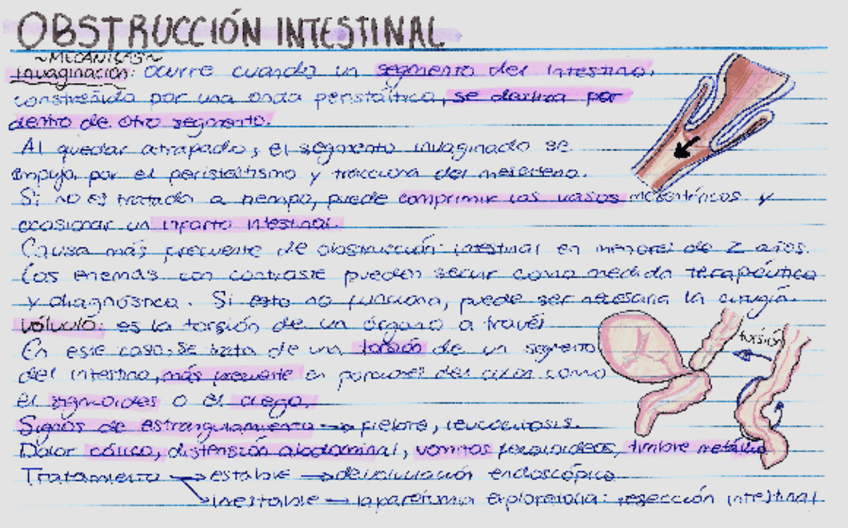 OBSTRUCCIÓN INTESTINAL
~MECANICAS~
Invaginación: ocurre cuando un segmento del intestino,
constreñido por una onda peristáltica, se desliza por
dentro de otro segmento.
Al quedar atrapado, el segmento invaginado se
empuja por el peristaltismo y tracciona del mesenterio.
Si no es tratado a tiempo, puede comprimir los vasos mesentéricos y
ocasionar un infarto intestinal.
Causa más frecuente de obstrucción intestinal en menores de 2 años.
Los enemas con contraste pueden servir como medida terapéutica
y diagnóstica. Si esto no funciona, puede ser necesaria la cirugía.
Vólvulo: es la torsión de un órgano a través
En este caso, se trata de una torsión de un segmento
torsión
del intestino, más frecuente en porciones del colon como
el sigmoides o el ciego.
Signos de estrangulamiento → fiebre, leucocitosis.
Dolor cólico, distensión abdominal, vómitos fecaloideos, timbre metálico
Tratamiento → estable → devolvulación endoscópica
→ Inestable → laparotomía exploratoria: resección intestinal